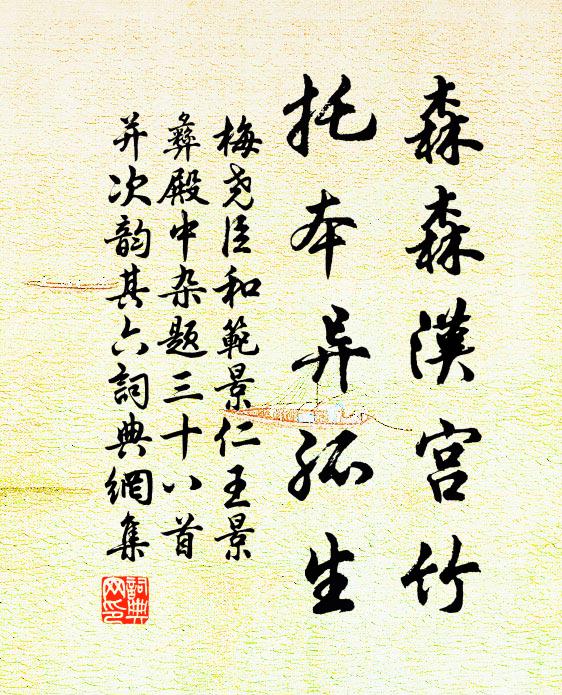 森森漢宮竹
托本异孤生
梅尧臣和範景仁王景
彝殿中杂题三十八首
并次韵其六詞典網集
詞典
网印